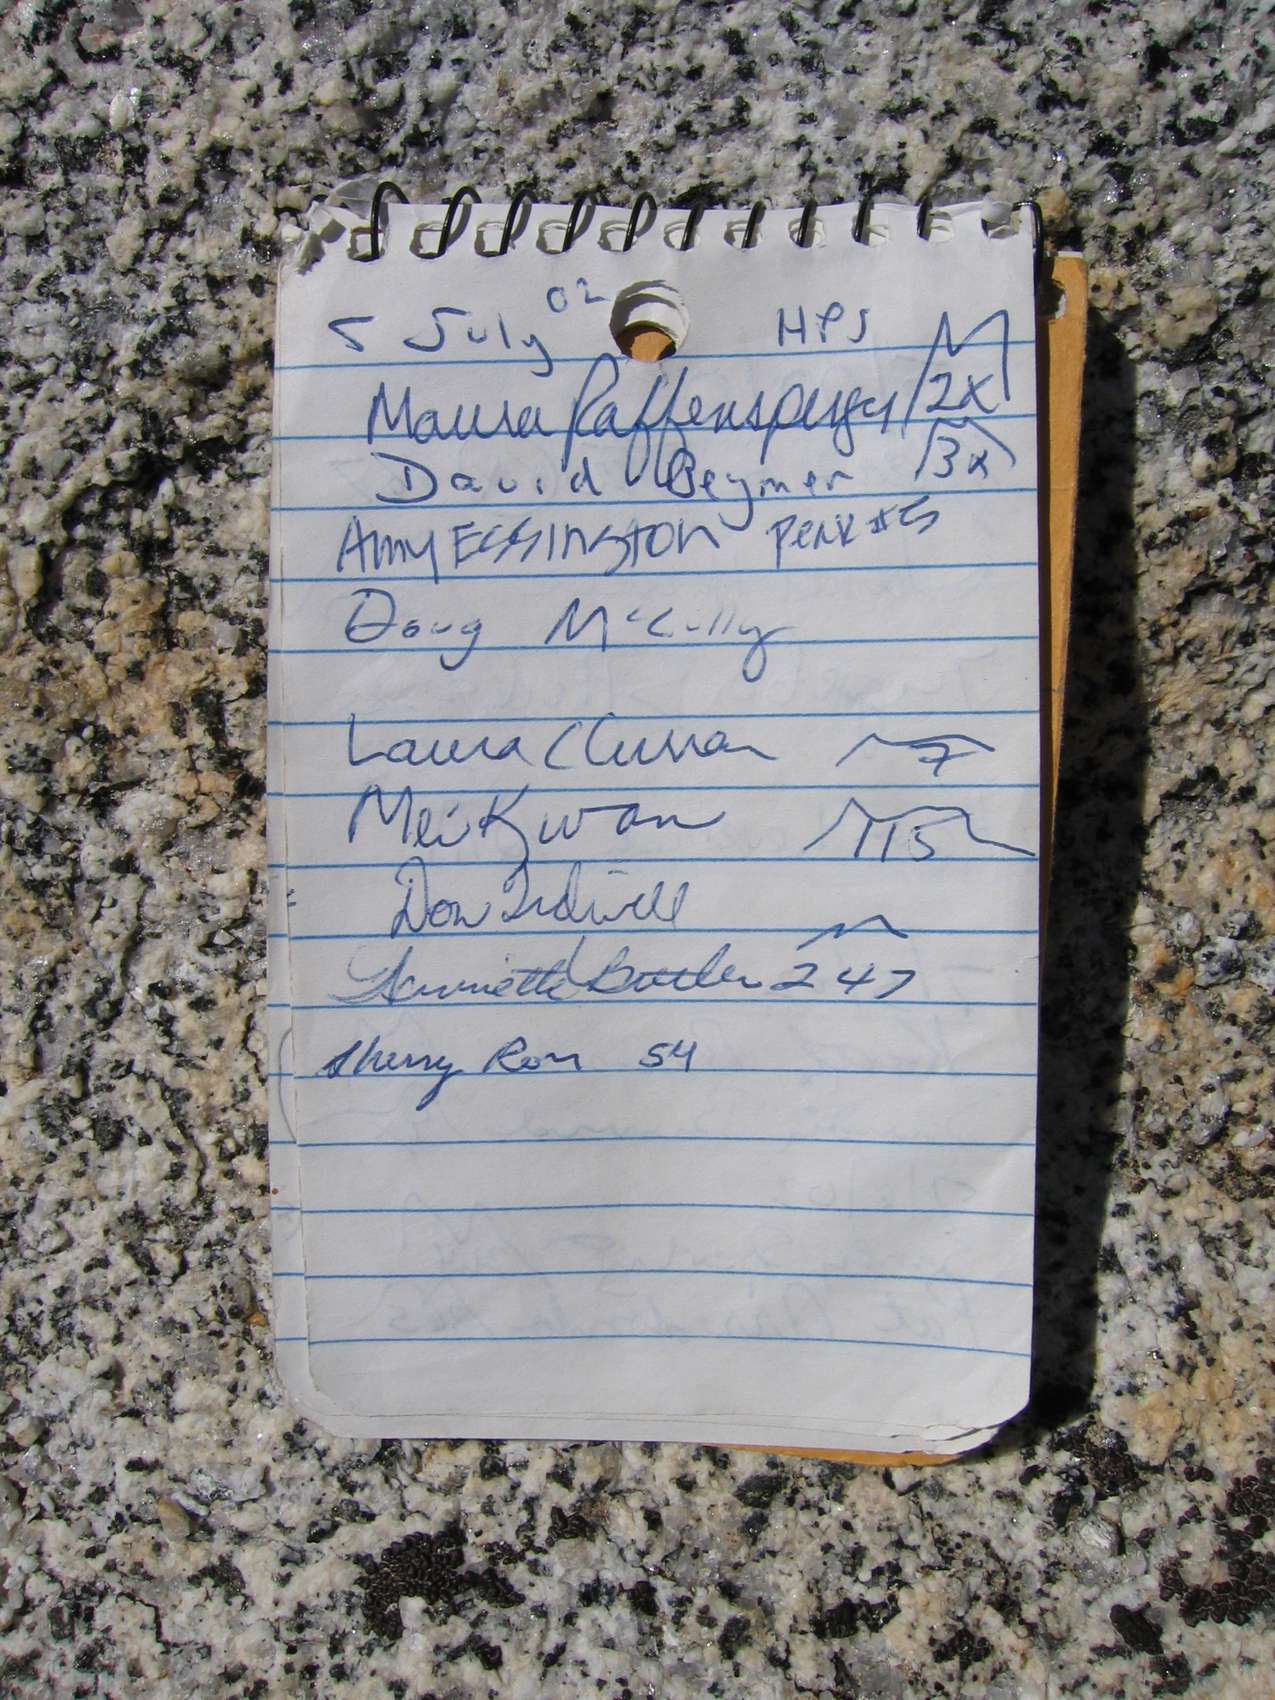 5 July 02 HPS
Maura Raffensperger 2x
David Beymer 3x
Amy Essington Peak #5
Doug McCully
Laura Curran 7
Mei Kwan 115
Don Tidwell
Butler 247
Sherry Ross 54